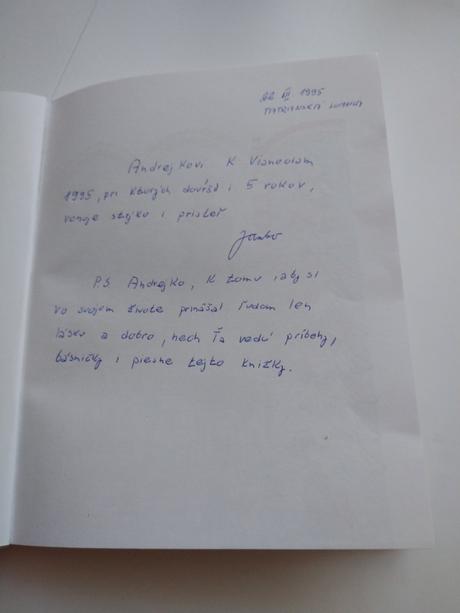 22 XII 1995
TATRANSKÁ LOMNICA
Andrejkovi K Vianociam
1995, pri ktorých dovŕšil i 5 rokov,
venuje strýko i priateľ
P.S. Andrejko, k tomu, aby si
vo svojom živote prinášal ľuďom len
lásku a dobro, nech Ťa vedú príbehy,
básničky i piesne tejto knižky.